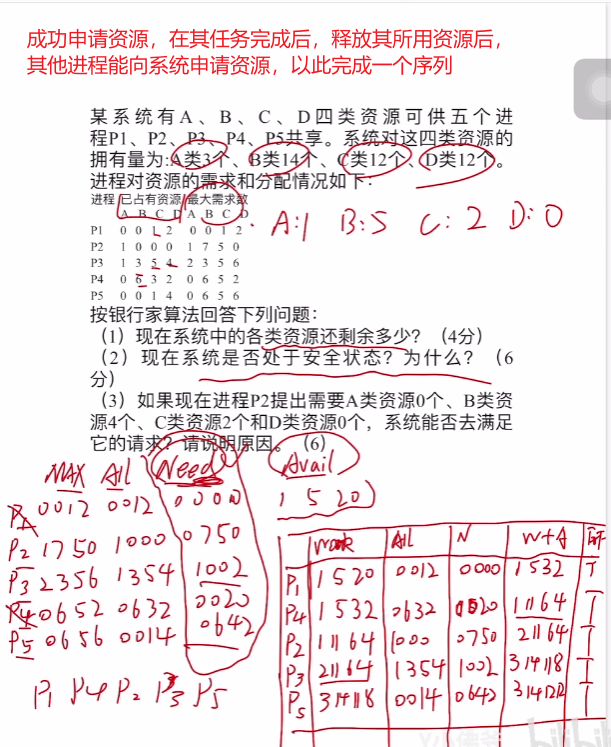 成功申请资源，在其任务完成后，释放其所用资源后，
其他进程能向系统申请资源，以此完成一个序列
某系统有A、B、C、D四类资源可供五个进
程P1、P2、P3、P4、P5共享。系统对这四类资源的
拥有量为:A类3个、B类14个、C类12个、D类12个。
进程对资源的需求和分配情况如下：
进程 已占有资源 最大需求数
A B C D A B C D
P1 0 0 1 2 0 0 1 2
P2 1 0 0 0 1 7 5 0
P3 1 3 5 4 2 3 5 6
P4 0 6 3 2 0 6 5 2
P5 0 0 1 4 0 6 5 6
A:1 B:5 C:2 D:0
按银行家算法回答下列问题：
（1）现在系统中的各类资源还剩余多少？（4分）
（2）现在系统是否处于安全状态？为什么？（6
分）
（3）如果现在进程P2提出需要A类资源0个、B类资
源4个、C类资源2个和D类资源0个，系统能否去满足
它的请求？请说明原因。（6）
MAX All Need Avail
P1 0012 0012 0000 1 5 2 0
P2 1750 1000 0750
P3 2356 1354 1002
P4 0652 0632 0020
P5 0656 0014 0642
P1 P4 P2 P3 P5
work All N W+A
P1 1520 0012 0000 1532 T
P4 1532 0632 0020 11164 T
P2 11164 1000 0750 21164 T
P3 21164 1354 1002 314118 T
P5 314118 0014 0642 3141212 T
bilibili